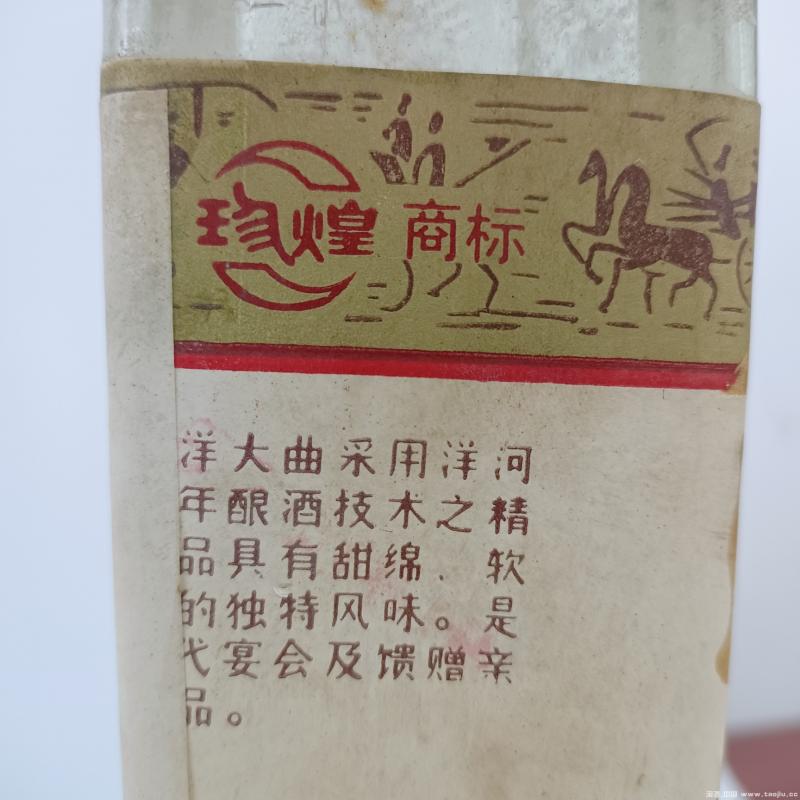 敦煌 商标
洋大曲采用洋河
年酿酒技术之精
品具有甜绵、软
的独特风味。是
代宴会及馈赠亲
品。
www.taojiu.cc